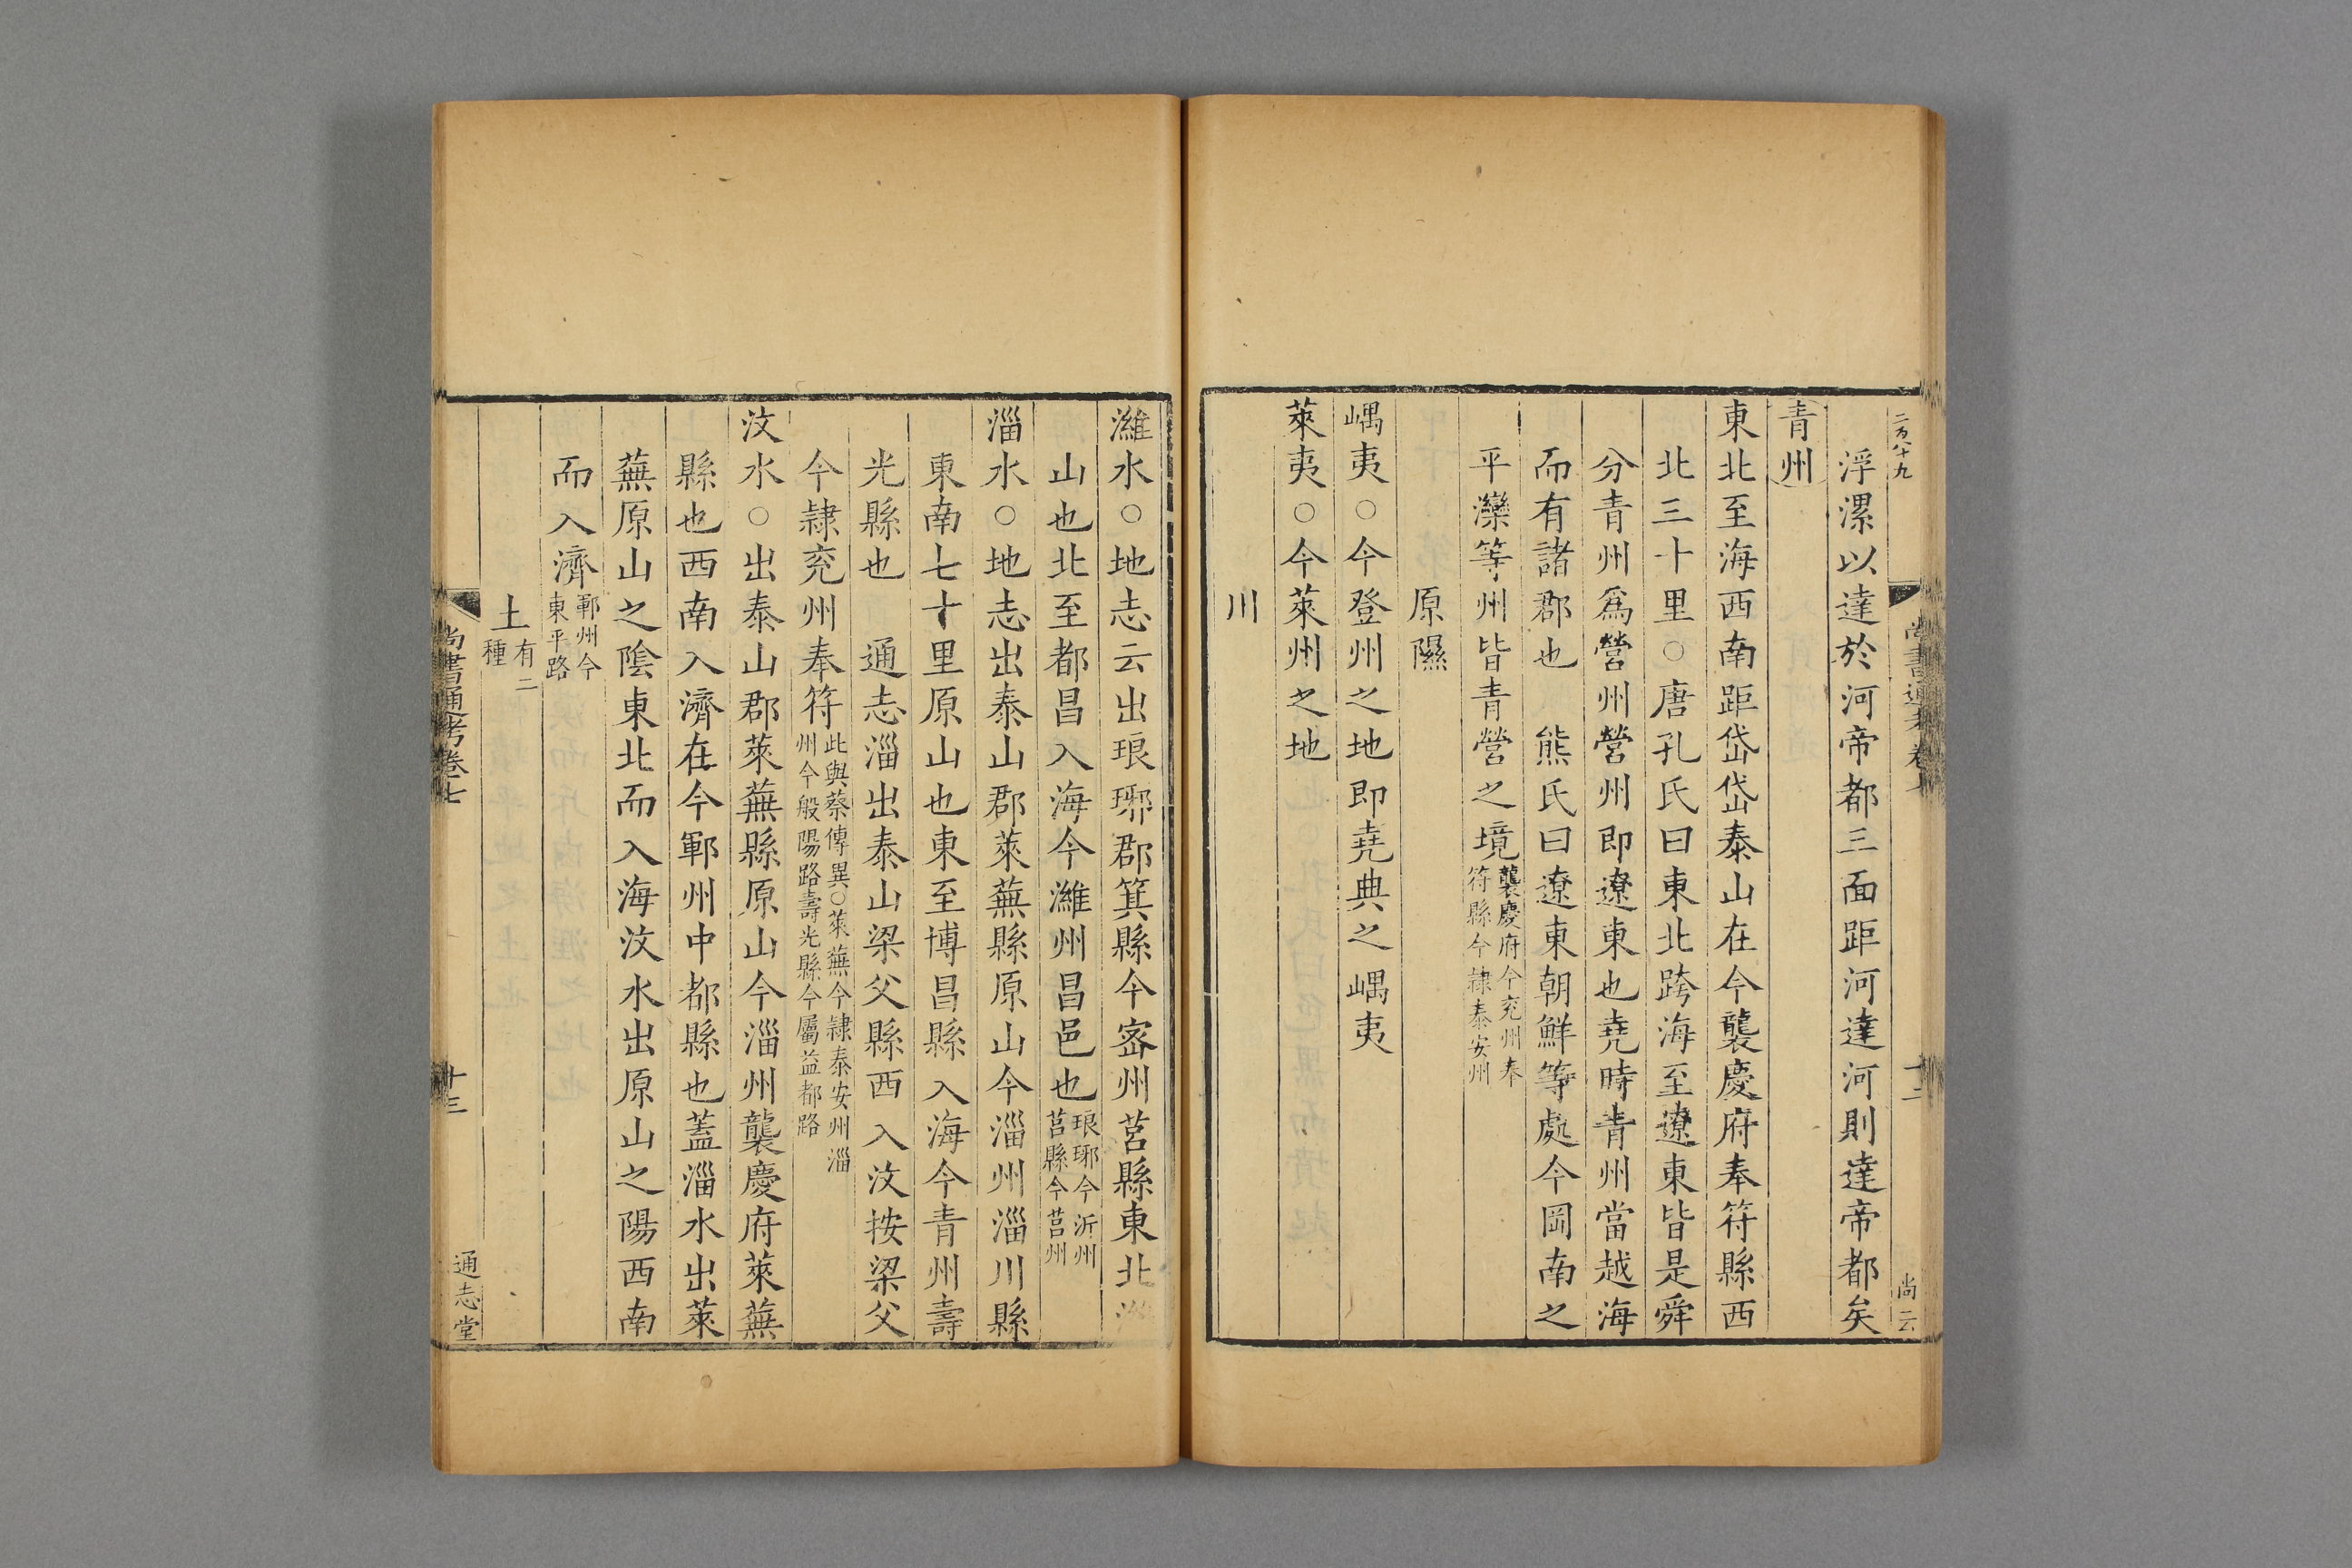 二百八十九
浮漯以達於河帝都三面距河達河則達帝都矣
青州
東北至海西南距岱岱泰山在今襲慶府奉符縣西
北三十里○唐孔氏曰東北跨海至遼東皆是舜
分青州爲營州營州即遼東也堯時青州當越海
而有諸郡也 熊氏曰遼東朝鮮等處今岡南之
平灤等州皆青營之境襲慶府今兖州奉符縣今隷泰安州
原隰
嵎夷○今登州之地即堯典之嵎夷
萊夷○今萊州之地
川
尚書通考卷七
十二
尚云
濰水○地志云出琅琊郡箕縣今密州莒縣東北濰
山也北至都昌入海今濰州昌邑也琅琊今沂州莒縣今莒州
淄水○地志出泰山郡萊蕪縣原山今淄州淄川縣
東南七十里原山也東至博昌縣入海今青州壽
光縣也 通志淄出泰山梁父縣西入汶按梁父
今隷兖州奉符此與蔡傳異○萊蕪今隷泰安州淄州今般陽路壽光縣今屬益都路
汶水○出泰山郡萊蕪縣原山今淄州襲慶府萊蕪
縣也西南入濟在今鄆州中都縣也蓋淄水出萊
蕪原山之隂東北而入海汶水出原山之陽西南
而入濟鄆州今東平路
土有二種
尚書通考卷七
十三
通志堂